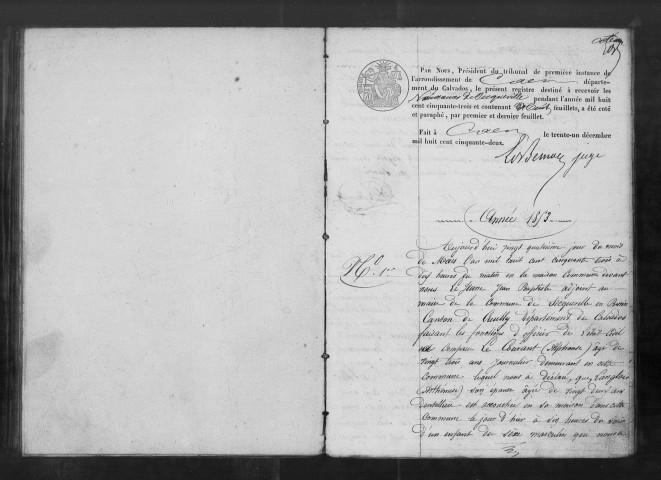 Par Nous, Président du tribunal de première instance de
l'arrondissement de Caen départe-
ment du Calvados, le présent registre destiné à recevoir les
Naissances de Secqueville pendant l'année mil huit
cent cinquante-trois et contenant feuillets, a été coté
et paraphé, par premier et dernier feuillet.
Fait à Caen le trente-un décembre
mil huit cent cinquante-deux.
juge
Année 1853
N.º 1er
Aujourd'hui vingt quatrième jour du mois
de Mars l'an mil huit cent cinquante trois à
dix heures du matin en la maison Commune devant
nous Le jeune Jean Baptiste adjoint au
maire de la Commune de Secqueville en Bessin
Canton de Creully département du Calvados
faisant les fonctions d'officier de l'état Civil
est Comparu Le Courant (Alphonse) âgé de
vingt trois ans journalier demeurant en cette
Commune lequel nous a déclaré, que Langlois
son épouse âgée de vingt deux ans
dentellière est accouchée en sa maison dans cette
Commune le jour d'hier à six heures du soir
d'un enfant de sexe masculin qui nous a